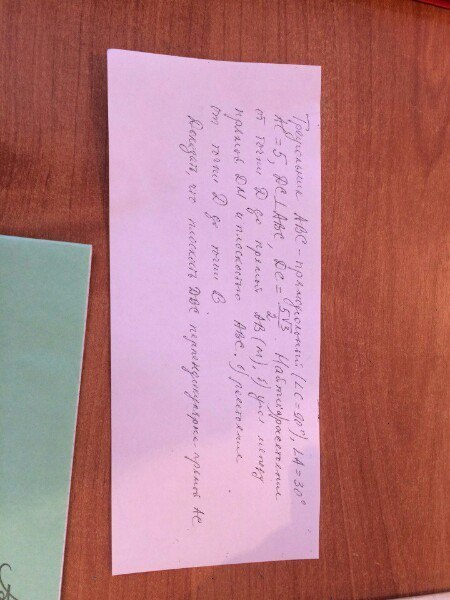 Треугольник ABC – прямоугольный (∠C = 90°), ∠A = 30°
AC = 5, DC ⊥ ABC, DC = 5√3/2. Найти: а) расстояние
от точки D до прямой AB (M), б) угол между
прямой DM и плоскостью ABC, в) расстояние
от точки D до точки B
Доказать, что плоскость DBC перпендикулярна прямой AC.